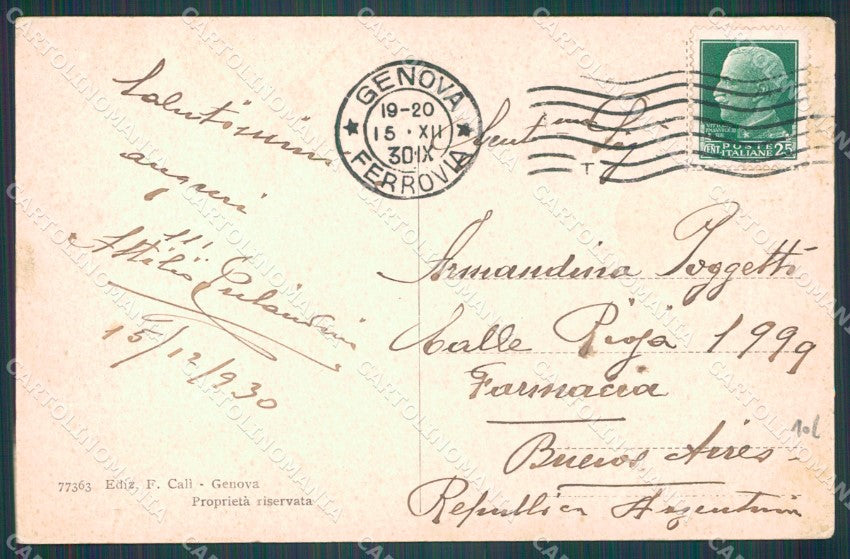 Salutissimi
auguri
Attilio
15/12/930
77363 Ediz. F. Calì - Genova
Proprietà riservata
GENOVA
19-20
15 · XII
30 IX
FERROVIA
T
POSTE
CENT. ITALIANE 25
Gent
Armandina Poggetti
Calle Rioja 1999
Farmacia
Buenos Aires -
Republica Argentina
CARTOLINOMANIA